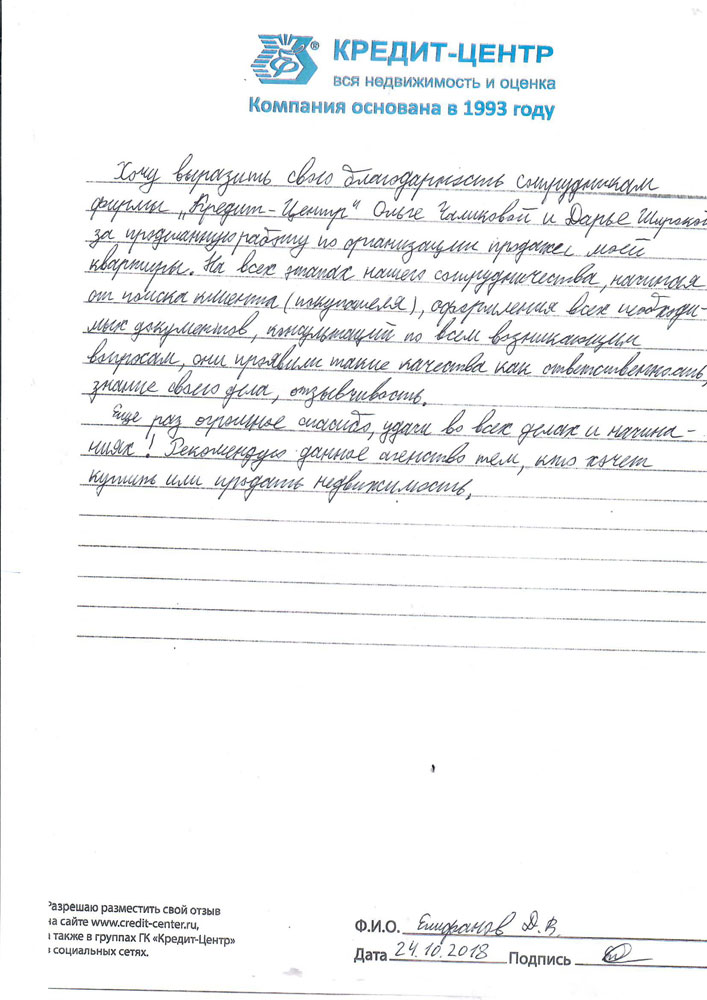 КРЕДИТ-ЦЕНТР
вся недвижимость и оценка
Компания основана в 1993 году
Хочу выразить свою благодарность сотрудникам
фирмы „Кредит-Центр“ Ольге Чаликовой и Дарье Широкой
за проделанную работу по организации продажи моей
квартиры. На всех этапах нашего сотрудничества, начиная
от поиска клиента (покупателя), оформления всех необходи-
мых документов, консультаций по всем возникающим
вопросам, они проявили такие качества как ответственность,
знание своего дела, отзывчивость.
Еще раз огромное спасибо, удачи во всех делах и начина-
ниях! Рекомендую данное агенство тем, кто хочет
купить или продать недвижимость.
Разрешаю разместить свой отзыв
на сайте www.credit-center.ru,
а также в группах ГК «Кредит-Центр»
в социальных сетях.
Ф.И.О. Д.В.
Дата 24.10.2018 Подпись